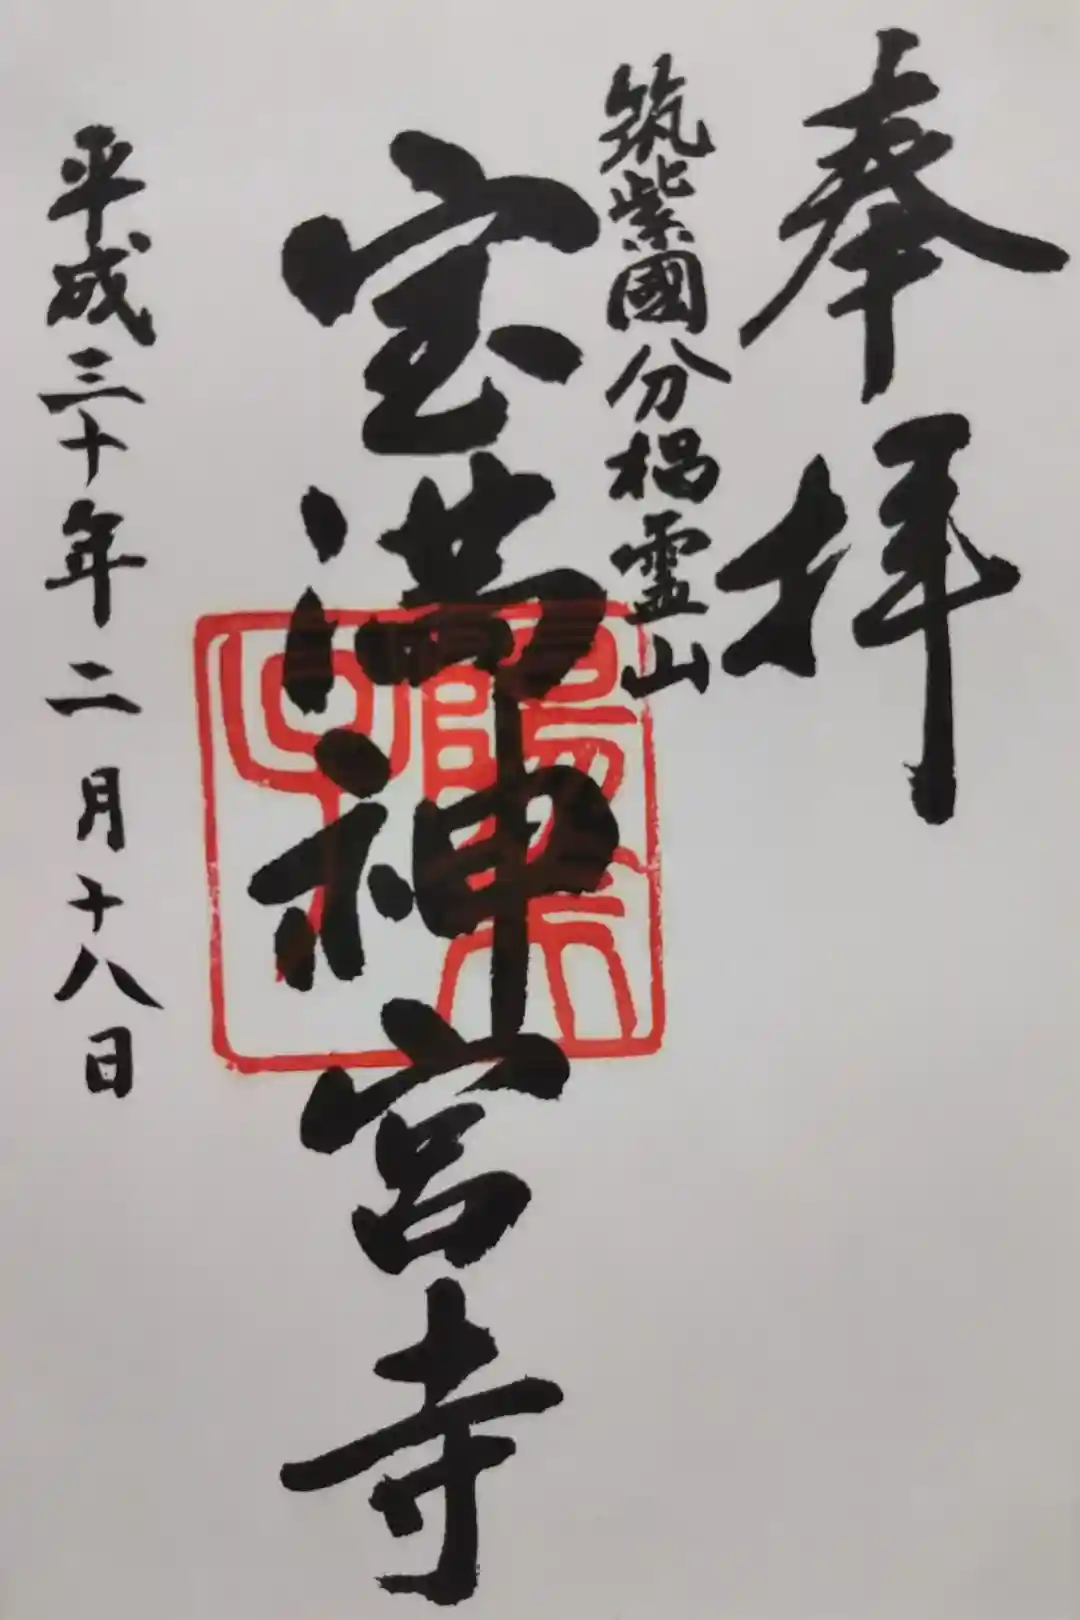 奉拝
筑紫國分榾霊山
宝満神宮寺
平成三十年二月十八日